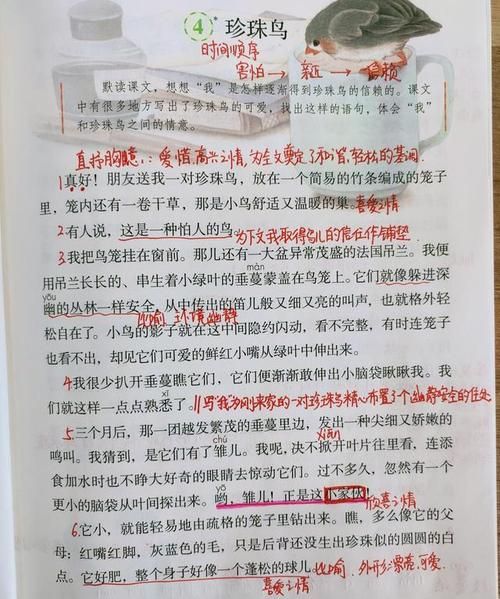 4 珍珠鸟
时间顺序
害怕→亲近→信赖
默读课文，想想“我”是怎样逐渐得到珍珠鸟的信赖的。课文
中有很多地方写出了珍珠鸟的可爱，找出这样的语句，体会“我”
和珍珠鸟之间的情意。
直抒胸臆：爱惜、高兴之情，为全文奠定了和谐、轻松的基调
1真好！朋友送我一对珍珠鸟，放在一个简易的竹条编成的笼子
里，笼内还有一卷干草，那是小鸟舒适又温暖的巢。喜爱之情
2有人说，这是一种怕人的鸟。为下文我取得鸟儿的信任作铺垫
3我把鸟笼挂在窗前。那儿还有一大盆异常茂盛的法国吊兰。我便
màn
用吊兰长长的、串生着小绿叶的垂蔓蒙盖在鸟笼上。它们就像躲进深
yōu
幽的丛林一样安全，从中传出的笛儿般又细又亮的叫声，也就格外轻
比喻 环境幽静
松自在了。小鸟的影子就在这中间隐约闪动，看不完整，有时连笼子
也看不出，却见它们可爱的鲜红小嘴从绿叶中伸出来。
4我很少扒开垂蔓瞧它们，它们便渐渐敢伸出小脑袋瞅瞅我。我
xī
们就这样一点点熟悉了。写我为刚来家的一对珍珠鸟精心布置了个幽静安全的住处
5.三个月后，那一团越发繁茂的垂蔓里边，发出一种尖细又娇嫩的
chú
xiān
鸣叫。我猜到，是它们有了雏儿。我呢，决不掀开叶片往里看，连添
食加水时也不睁大好奇的眼睛去惊动它们。过不多久，忽然有一个
yō
更小的脑袋从叶间探出来。哟，雏儿！正是这小家伙！
欣喜之情
6.它小，就能轻易地由疏格的笼子里钻出来。瞧，多么像它的父
母：红嘴红脚，灰蓝色的毛，只是后背还没生出珍珠似的圆圆的白
点。它好肥，整个身子好像一个蓬松的球儿。比喻 外形：漂亮、可爱
喜爱之情